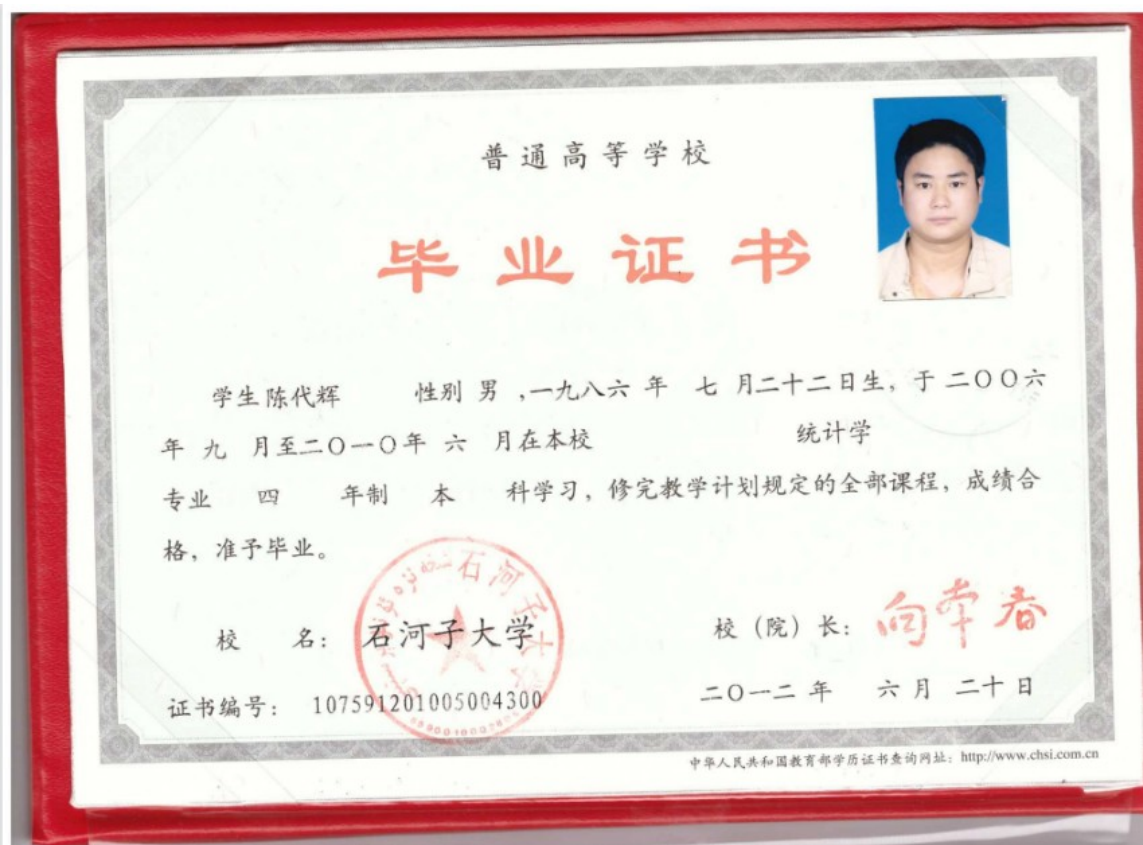 普通高等学校
毕业证书
学生 陈代辉 性别 男 ,一九八六 年 七 月二十二日生, 于 二〇〇六
年 九 月至二〇一〇年 六 月在本校 统计学
专业 四 年制 本 科学习, 修完教学计划规定的全部课程, 成绩合
格, 准予毕业。
石河子大学
校 名: 石河子大学 校 (院) 长:
证书编号: 107591201005004300 二〇一二 年 六 月 二十 日
中华人民共和国教育部学历证书查询网址: http://www.chsi.com.cn